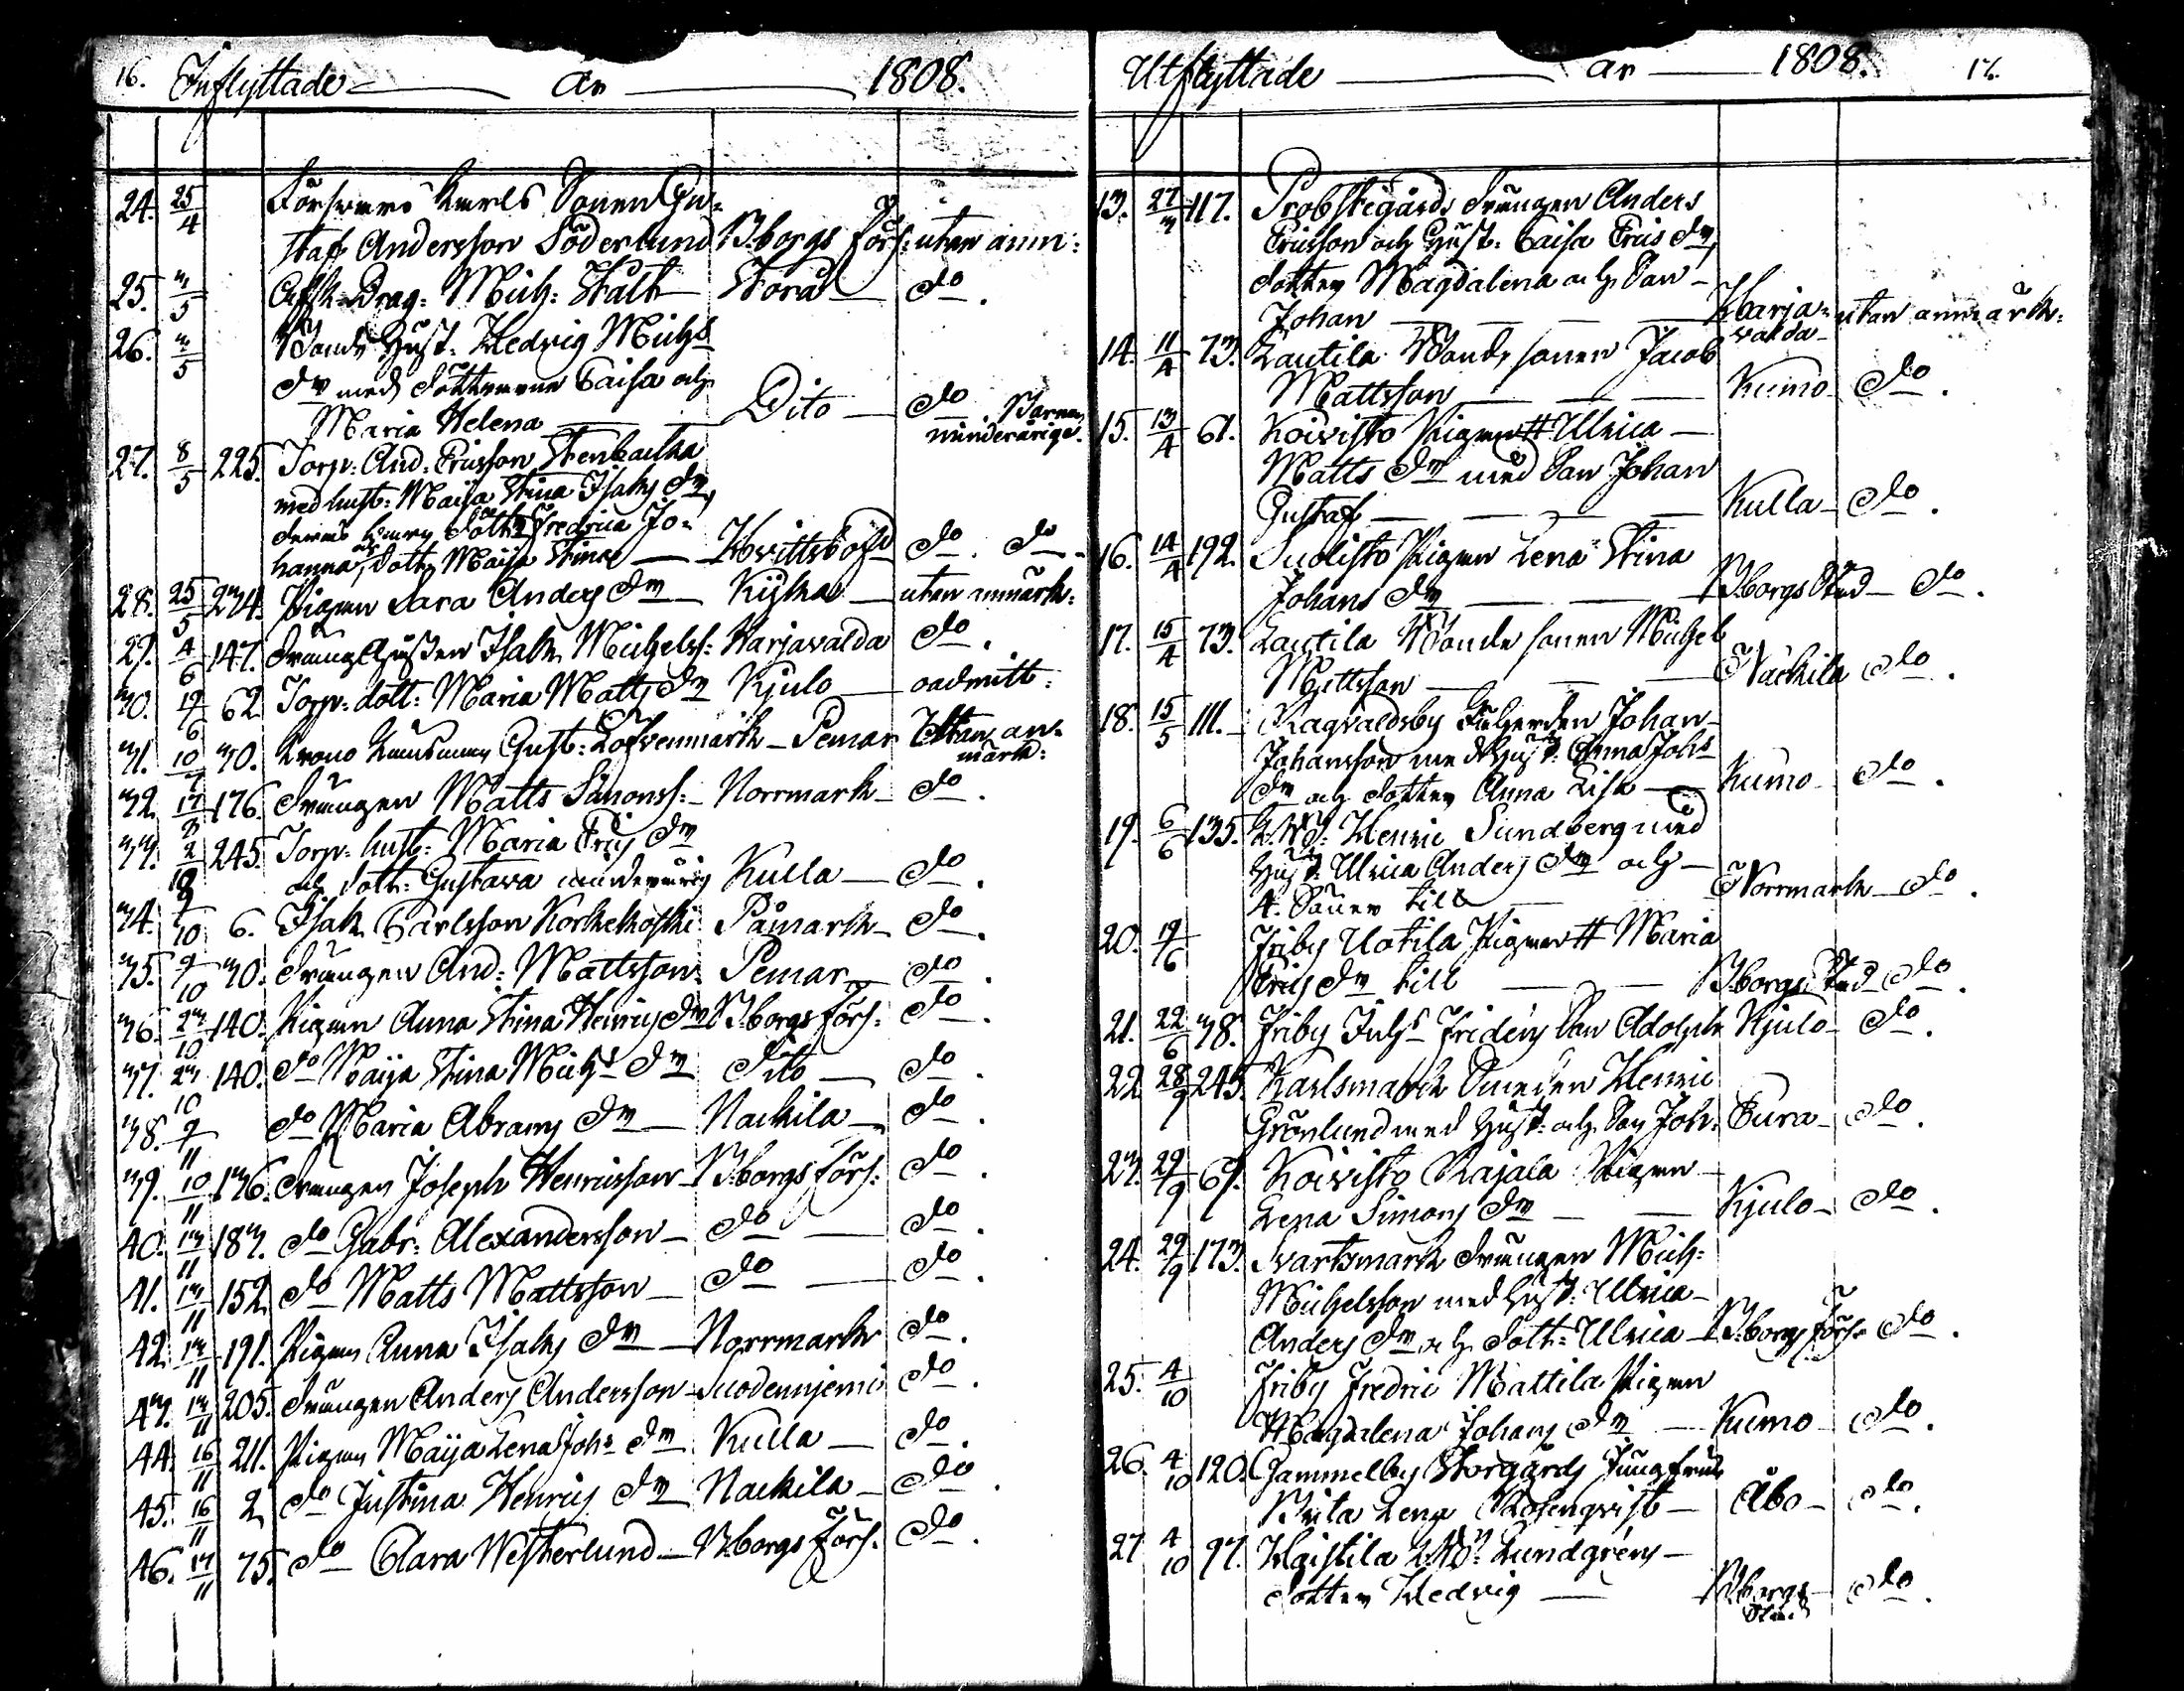 16. Inflyttade år 1808.
24. 25/4 Försvars Karls Sonen Gu-
staf Andersson Söderlund B:borgs förs: utan anm:
25. 3/5 Afsk: Drag: Mich: Stålt Storå do.
26. 3/5 Bonds Hust: Hedvig Michs
dr med döttrarne Caisa och
Maria Helena Dito do. Barnen
minderårige.
27. 8/5 225. Torp: And: Ersson Stenbacka
med hust: Maija Stina Isaks dr,
deras barn dottr Fredrica Jo-
hanna, och dottr Maija Stina Hvittisbofj. do. do.
28. 25/5 234. Pigan Sara Anders dr Kijlka utan anmärk:
29. 4/6 147. Isak Michelss: Harjavalda do.
30. 19/6 62. Torp: dott: Maria Matts dr Kjulo oadmitt:
31. 10/7 30. Krono Länsman Gust: Löfvenmark Pemar Utan an-
märk:
32. 17/8 176. Drängen Matts Simonss: Norrmark do.
33. 2/10 245. Torp: hust: Maria Ers dr
och dottr: Gustava minderårig Kulla do.
34. 9/10 6. Isak Carlsson Korkekoski Påmark do.
35. 9/10 30. Drängen And: Mattsson Pemar do.
36. 23/10 140. Pigan Anna Stina Henrics dr B:borgs förs: do.
37. 23/10 140. do Maija Stina Michs dr Dito do.
38. 9/11 do Maria Abrams dr Nackila do.
39. 10/11 136. Drängen Joseph Henricsson B:borgs förs: do.
40. 13/11 183. do Gabr: Alexandersson do do.
41. 13/11 152. do Matts Mattsson do do.
42. 13/11 191. Pigan Anna Isaks dr Norrmark do.
43. 13/11 205. Drängen Anders Andersson Suodenniemi do.
44. 16/11 211. Pigan Maija Lena Johs dr Kulla do.
45. 16/11 2. do Justina Henrics dr Nackila do.
46. 17/11 75. do Clara Westerlund B:borgs Förs: do.
Utflyttade år 1808. 17.
13. 27/3 117. Probstegårds Drängen Anders
Ersson och Hust: Caisa Ers dr,
dotter Magdalena och Son
Johan Harja- utan anmärk:
valda
14. 11/4 73. Lautila Bonde sonen Jacob
Mattsson Kumo do.
15. 13/4 61. Koivisto Pigan # Ulrica
Matts dr med Son Johan
Gustaf Kulla do.
16. 14/4 192. Suolisto Pigan Lena Stina
Johans dr B:borgs Stad do.
17. 15/4 73. Lautila Bonde sonen Michel
Mattsson Nackila do.
18. 15/5 111. Ragvaldsby Johan
Johansson med Hust: Anna Johs
dr och dotter Anna Lisa Kumo do.
19. 6/6 135. Henric Sundberg med
Hust: Ulrica Anders dr och
4. Söner till Norrmark do.
20. 19/6 Friby Uotila Pigan # Maria
Ers dr till B:borgs Stad do.
21. 22/6 38. Friby Fridens Son Adolph Kjulo do.
22. 28/9 245. Karlsmark Smeden Henric
Grönlund med Hust: och Son Joh: Eura do.
23. 29/9 69. Koivisto Rajala Pigan
Lena Simons dr Kjulo do.
24. 29/9 173. Svartsmark Drängen Mich:
Michelsson med Hust: Ulrica
Anders dr och dott: Ulrica B:borgs förs: do.
25. 4/10 Friby Fredric Mattila Pigan
Magdalena Johans dr Kumo do.
26. 4/10 120. Gammelby Storgårds Jungfrun
Brita Lena Rosenqvist Åbo do.
27 4/10 97. Haistila Lundgrens
dotter Hedvig B:borgs do.
Stad